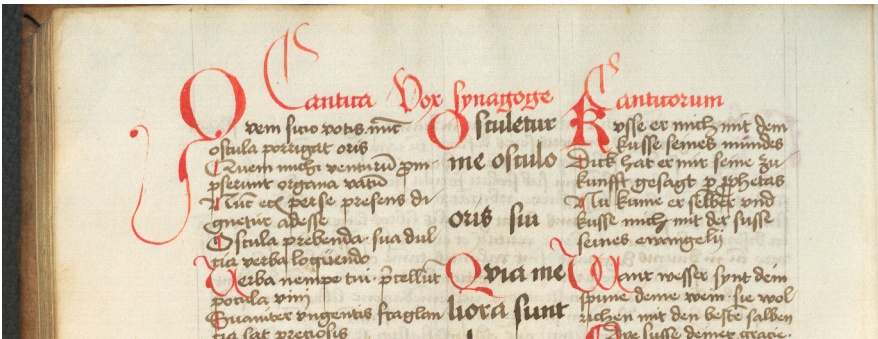 Cantica Vox synagoge Canticorum
Quem sicio votis nūc
oscula porrigat oris
Quem michi venturū prom-
pserunt organa vatū
Nūc ecā per se presens di
gnetur adesse
Oscula prebendo sua dul
cia verba loquendo
Verba nempe tui p̄cellūt
pocula vini
Suauiter vngentis fraglan
cia sat preciosis
Osculetur
me osculo
oris sui
Quia me
liora sunt
Kusse er mich mit dem
kusse seines mundes
Dick hat er mir seine zu
kunfft gesagt p̄ prophetas
Nu kume er selber vnd
kusse mich mit der susse
seines ewangelij
Wann wesser synt dein
spune denne wein sie wol
richen mit den beste salben
susse deiner gracie